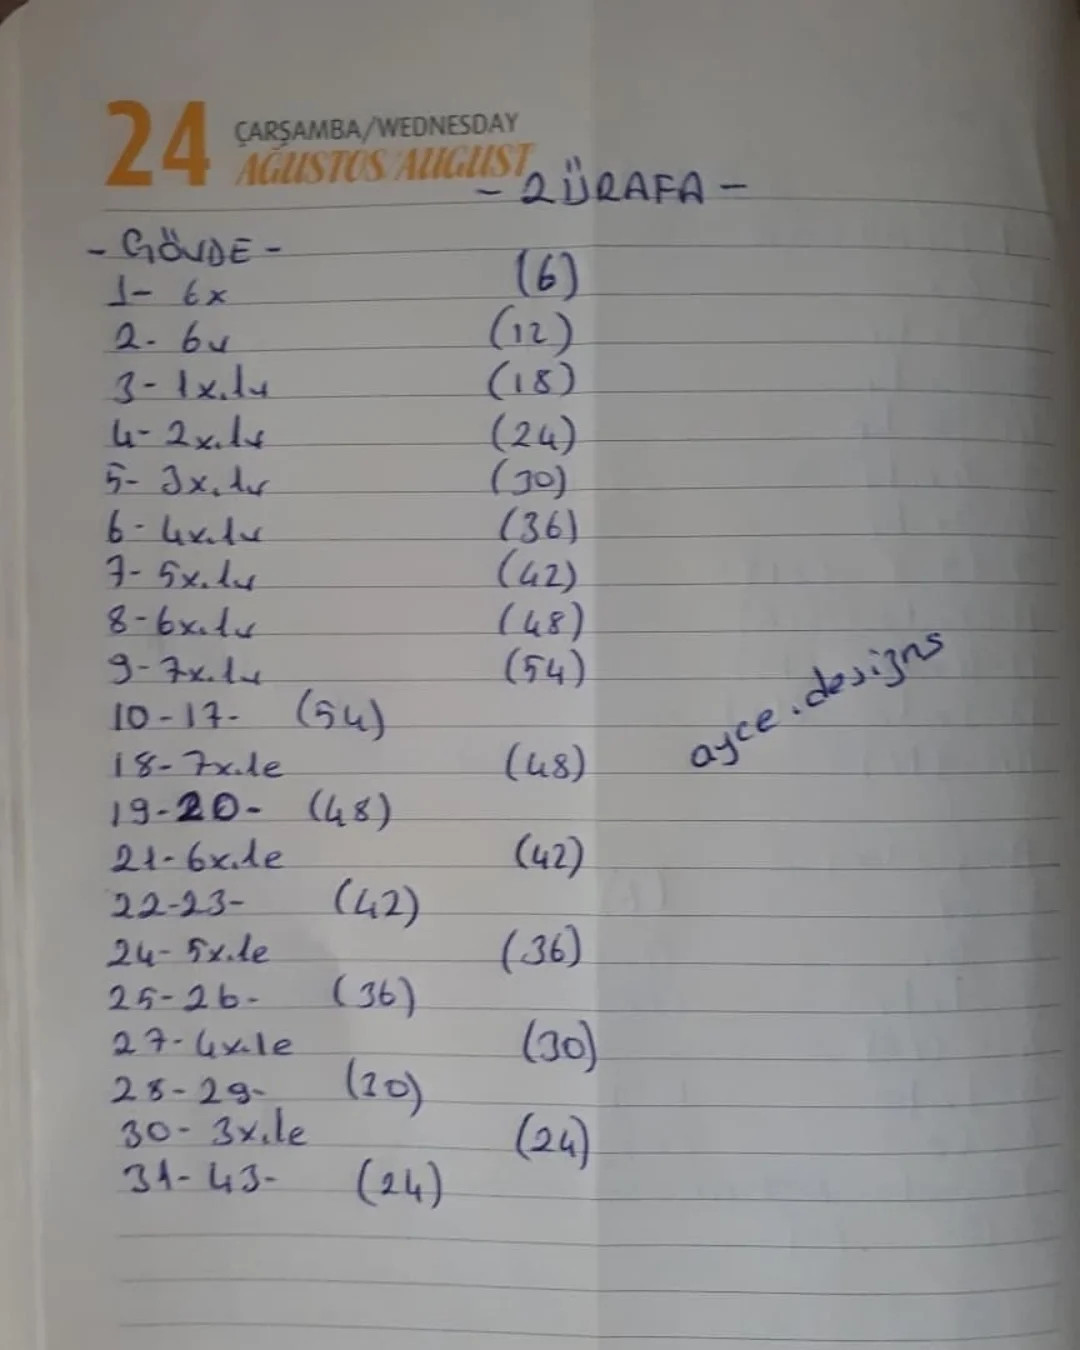 24 ÇARŞAMBA/WEDNESDAY
AĞUSTOS/AUGUST
- ZÜRAFA -
- GÖVDE -
1- 6x (6)
2- 6v (12)
3- 1x.1v (18)
4- 2x.1v (24)
5- 3x.1v (30)
6- 4x.1v (36)
7- 5x.1v (42)
8- 6x.1v (48)
9- 7x.1v (54)
10-17- (54)
18- 7x.1e (48)
19-20- (48)
21-6x.1e (42)
22-23- (42)
24- 5x.1e (36)
25-26- (36)
27-4x.1e (30)
28-29- (30)
30- 3x.1e (24)
31-43- (24)
ayce.designs